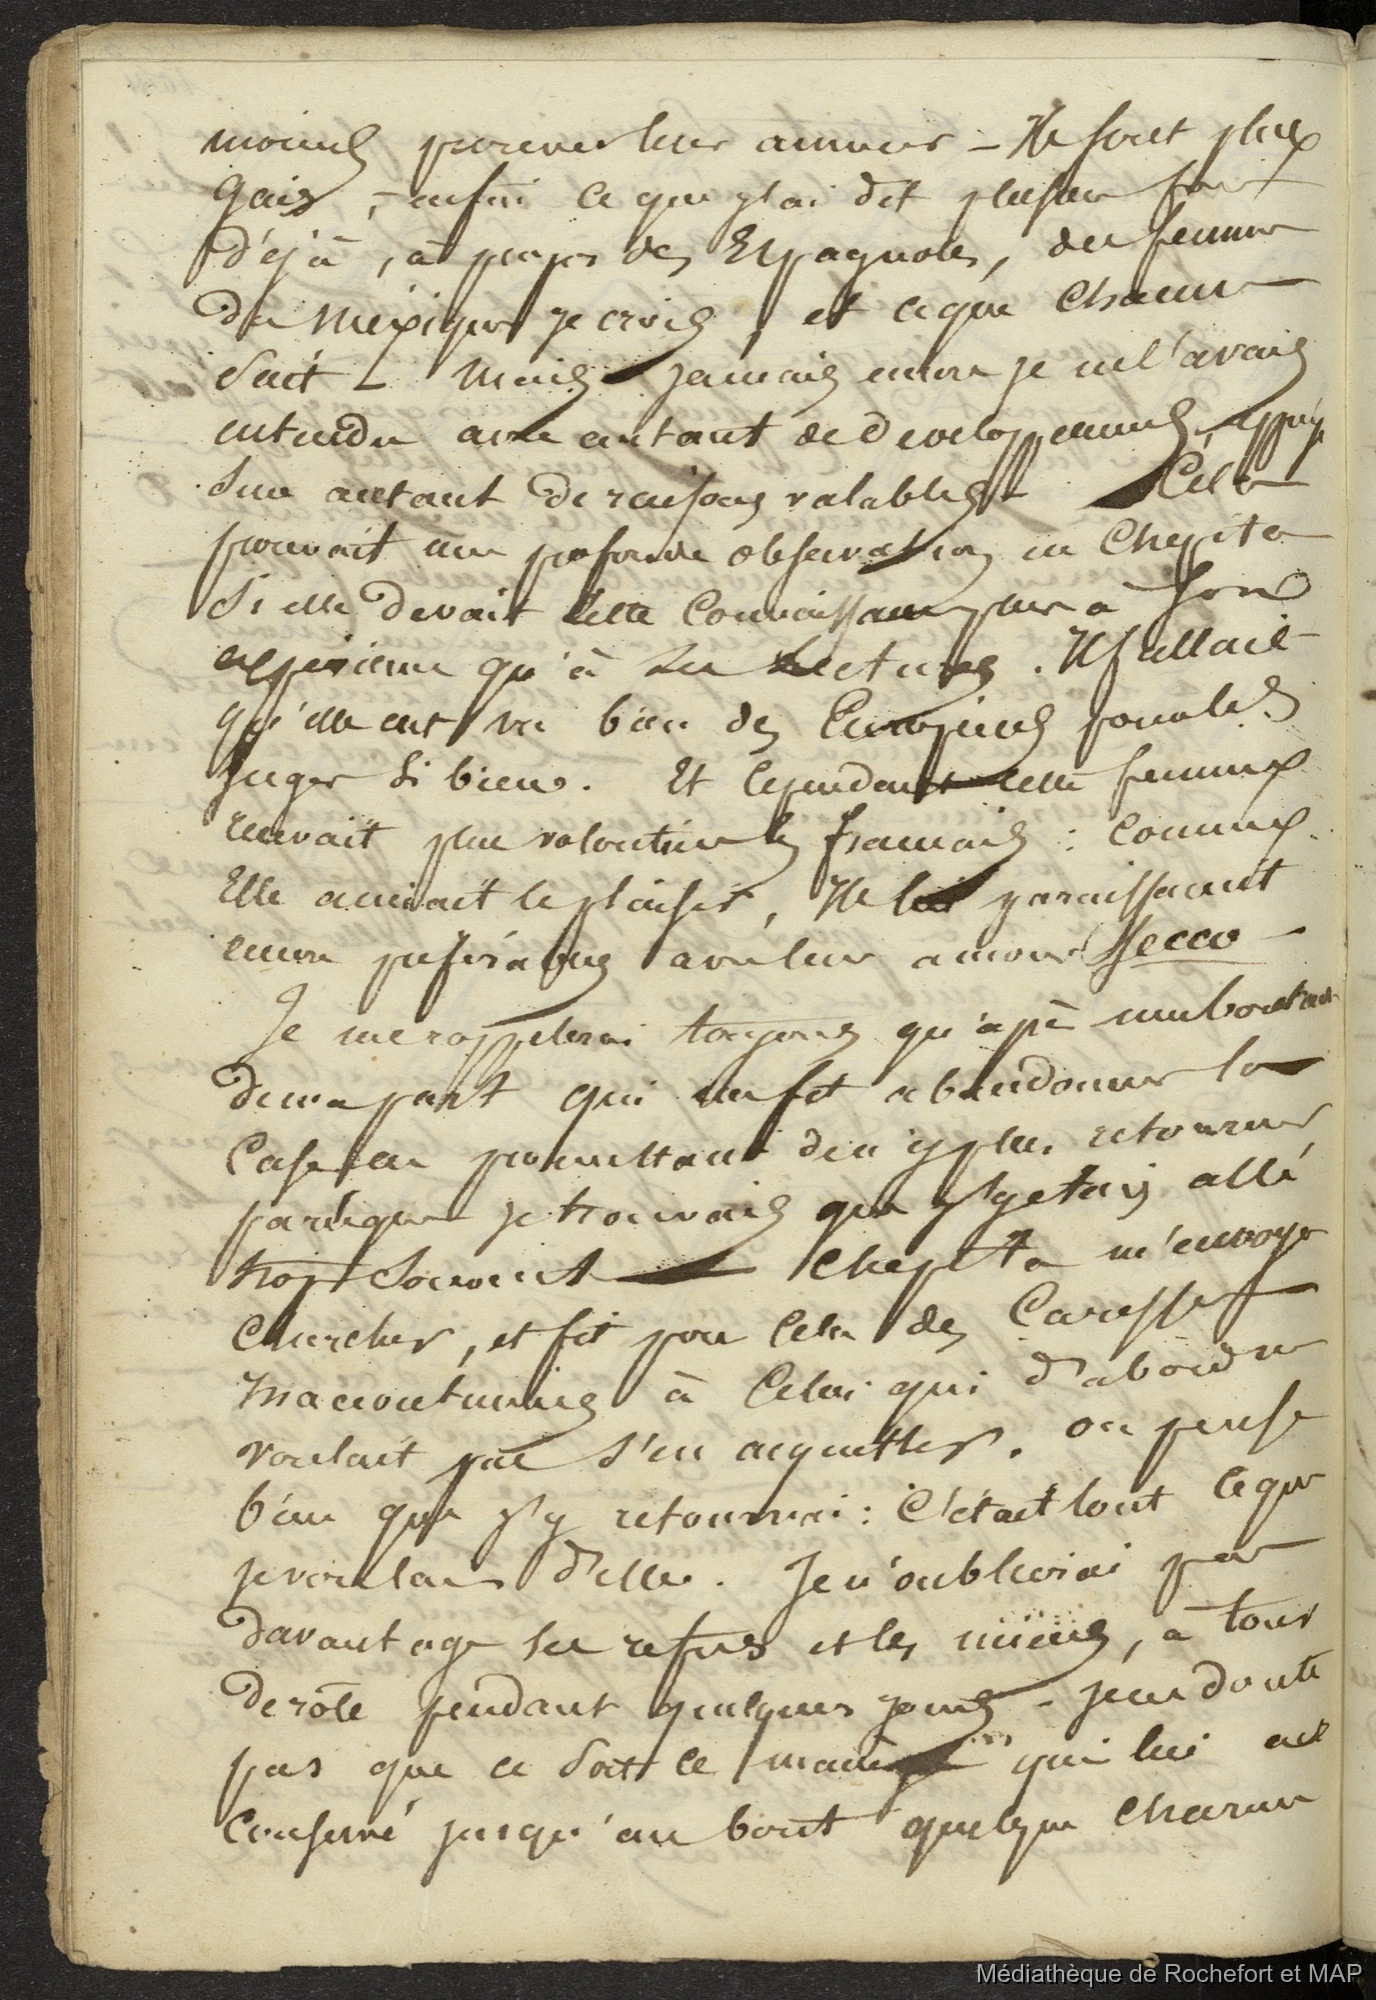 moins pour leur amour – Ils sont plus
Gais, – enfin ce que j'ai dit plusieurs fois
Déjà, à propos des Espagnoles, des femmes
du Méxique je crois, et ce que chacun
Sait – Mais jamais encore je ne l'avais
entendu avec autant de développemens, appuyé
Sur autant de raisons valables – Cela
prouvait une profonde observation en Chepita
Si elle devait cette Connaissance plus à Son
expérience qu'à ses Lectures. Il fallait
qu'elle eut vu bien des Européens pour les
Juger Si bien. Et Cependant cette femme
recevait plus volontiers les français : Comme
Elle aimait le plaisir, Ils lui paraissaient
encore préférables avec leur amour Secco –
Je me rappelerai toujours qu'après une boutade
de ma part qui me fit abandonner la
Case en promettant de n'y plus retourner,
parceque je trouvais que j'y étais allé
trop Souvent – Chepita m'envoya
Chercher, et fit pour Cela des Caresses
Inaccoutumées à Celui qui d'abord ne
voulait pas s'en acquitter. On pense
bien que j'y retournai : C'était tout ce que
je voulais d'elle. Je n'oublierai pas
davantage ses refus et les miens, à tour
de rôle pendant quelques jours – Je ne doute
pas que ce Soit ce qui lui ait
Conservé jusqu'au bout quelque charme
Médiathèque de Rochefort et MAP